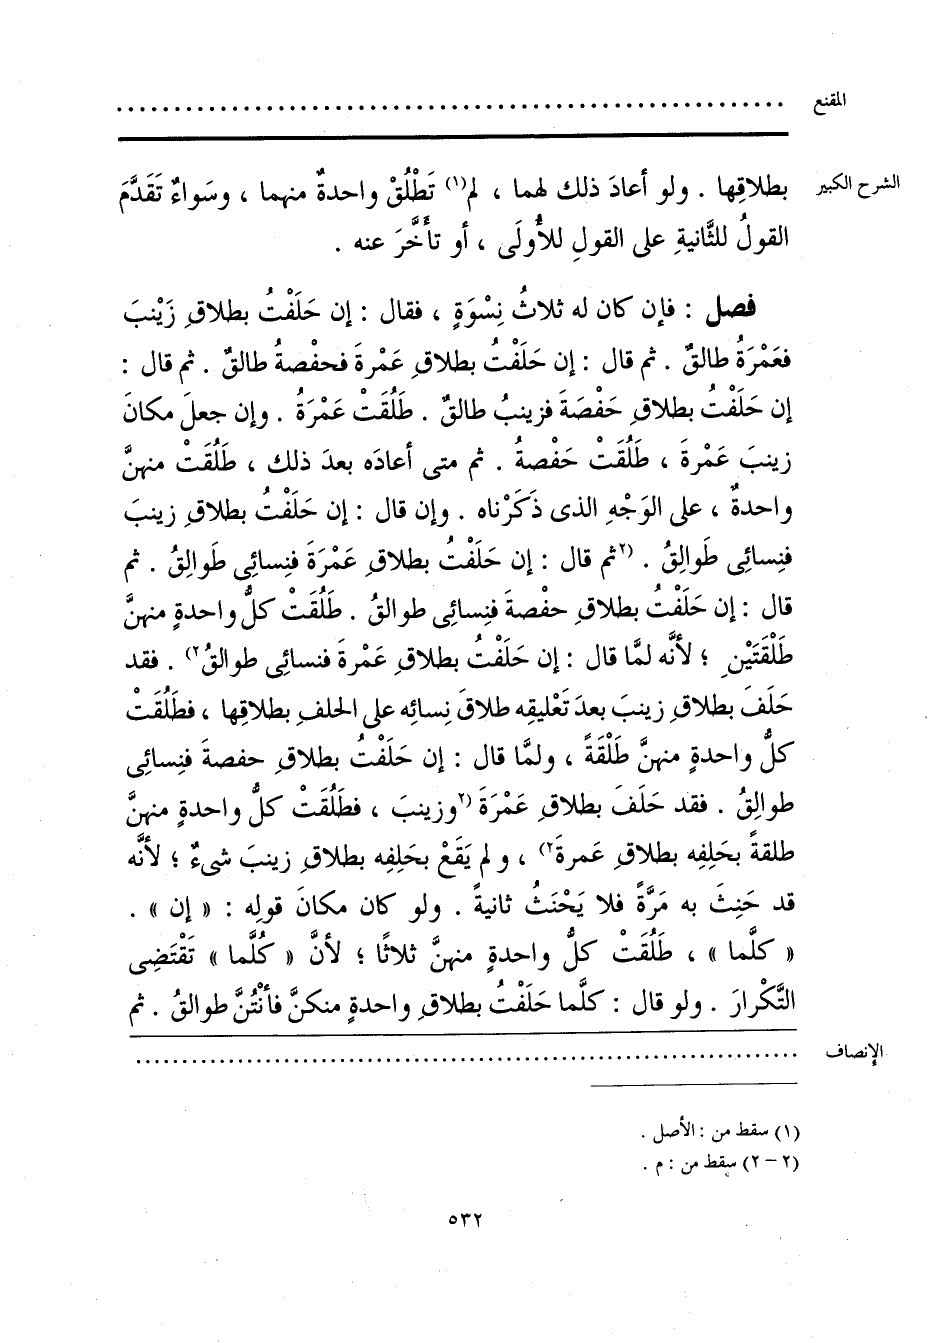 المقنع ............................................................
الشرح الكبير بطلاقِها . ولو أعادَ ذلك لهما ، لم(١) تَطْلُقْ واحدةٌ منهما ، وسَواءٌ تَقَدَّمَ
القولُ للثَّانيةِ على القولِ للأُولَى ، أو تأَخَّرَ عنه .
فصل : فإن كان له ثلاثُ نِسْوَةٍ ، فقال : إن حَلَفْتُ بطلاقِ زَيْنبَ
فعَمْرَةُ طالقٌ . ثم قال : إن حَلَفْتُ بطلاقِ عَمْرةَ فحفْصةُ طالقٌ . ثم قال :
إن حَلَفْتُ بطلاقِ حَفْصَةَ فزينبُ طالقٌ . طَلُقَتْ عَمْرَةُ . وإن جعلَ مكانَ
زينبَ عَمْرةَ ، طَلُقَتْ حَفْصةُ . ثم متى أعادَه بعدَ ذلك ، طَلُقَتْ منهنَّ
واحدةٌ ، على الوَجْهِ الذى ذَكَرْناه . وإن قال : إن حَلَفْتُ بطلاقِ زينبَ
فنِسائِى طَوالِقُ . (٢ثم قال : إن حَلَفْتُ بطلاقِ عَمْرَةَ فنِسائِى طَوالِقُ . ثم
قال : إن حَلَفْتُ بطلاقِ حفْصةَ فنِسائِى طوالقُ . طَلُقَتْ كلُّ واحدةٍ منهنَّ
طَلْقَتَيْنِ ؛ لأنَّه لمَّا قال : إن حَلَفْتُ بطلاقِ عَمْرةَ فنسائِى طوالقُ٢) . فقد
حَلَفَ بطلاقِ زينبَ بعدَ تَعْليقِه طلاقَ نِسائِه على الحلفِ بطلاقِها ، فطَلُقَتْ
كلُّ واحدةٍ منهنَّ طَلْقَةً ، ولمَّا قال : إن حَلَفْتُ بطلاقِ حفصةَ فنِسائِى
طوالِقُ . فقد حَلَفَ بطلاقِ عَمْرَةَ (٢وزينبَ ، فطَلُقَتْ كلُّ واحدةٍ منهنَّ
طلقةً بحَلِفِه بطلاقِ عَمرةَ٢) ، ولم يَقَعْ بحَلِفِه بطلاقِ زينبَ شىءٌ ؛ لأنَّه
قد حَنِثَ به مَرَّةً فلا يَحْنَثُ ثانيةً . ولو كان مكانَ قولِه : « إن » .
« كلَّما » ، طَلُقَتْ كلُّ واحدةٍ منهنَّ ثلاثًا ؛ لأنَّ « كُلَّما » تَقْتَضِى
التَّكْرارَ . ولو قال : كلَّما حَلَفْتُ بطلاقِ واحدةٍ منكنَّ فأنْتُنَّ طوالقُ . ثم
الإنصاف ............................................................
(١) سقط من : الأصل .
(٢ - ٢) سقط من : م .
٥٣٢